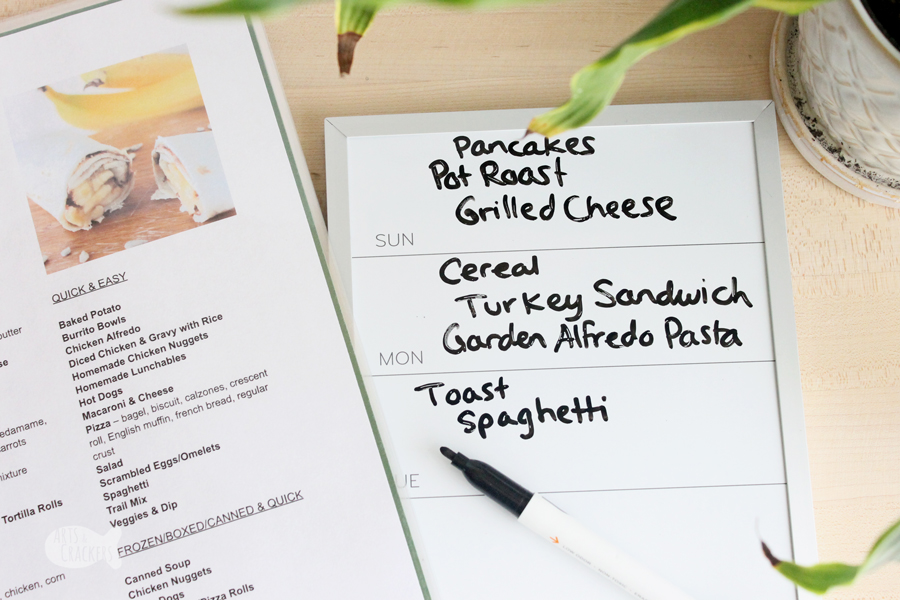 QUICK & EASY
Baked Potato
Burrito Bowls
Chicken Alfredo
Diced Chicken & Gravy with Rice
Homemade Chicken Nuggets
Homemade Lunchables
Hot Dogs
Macaroni & Cheese
Pizza – bagel, biscuit, calzones, crescent
roll, English muffin, french bread, regular
crust
Salad
Scrambled Eggs/Omelets
Spaghetti
Trail Mix
Veggies & Dip
FROZEN/BOXED/CANNED & QUICK
Canned Soup
Chicken Nuggets
Dogs
Pizza Rolls
Tortilla Rolls
, chicken, corn
ARTSY
CRACKERS
Pancakes
Pot Roast
Grilled Cheese
SUN
Cereal
Turkey Sandwich
Garden Alfredo Pasta
MON
Toast
Spaghetti
UE